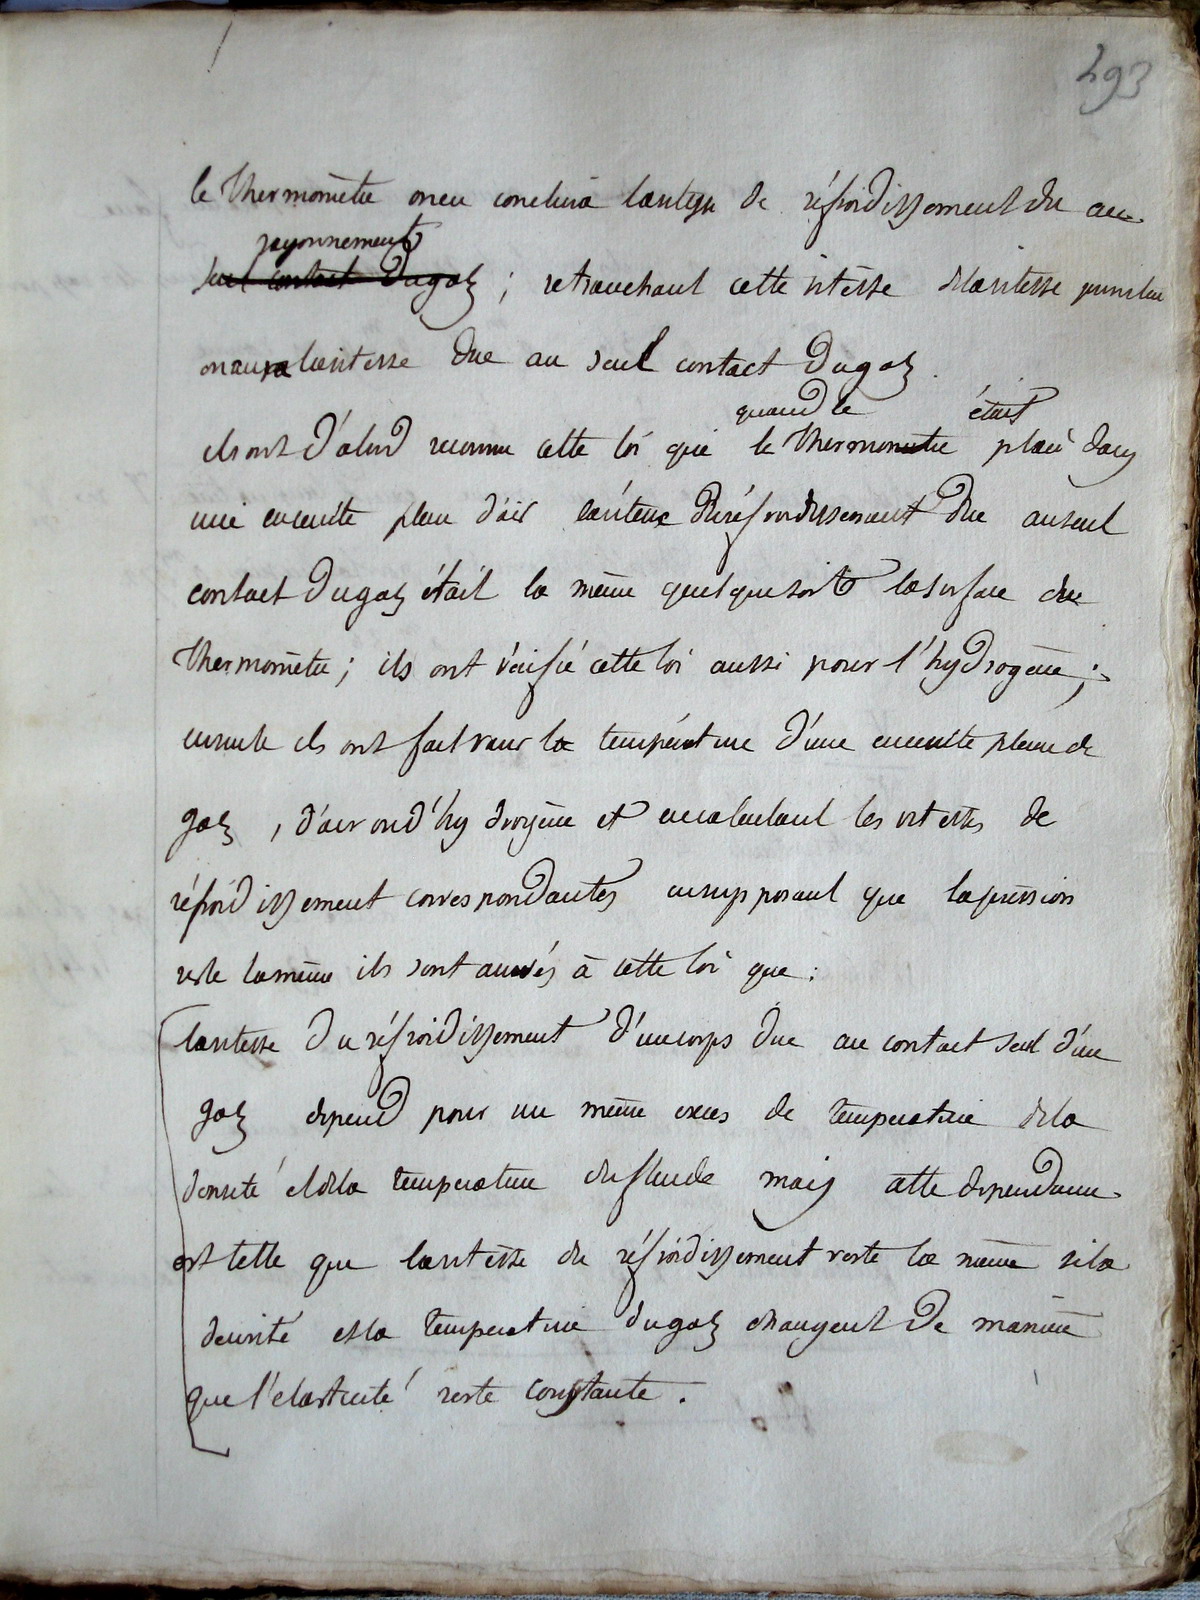 293
le thermomètre on en conclura la vitesse de réfroidissement du au
rayonnement
seul contact du gaz ; retranchant cette vitesse de la vitesse
on aura la vitesse due au seul contact du gaz.
quand le était
ils ont d'abord reconnu cette loi que le thermometre placé dans
une enceinte plein d'air la vitesse du réfroidissement due au seul
contact du gaz était la même quelque soit la surface du
thermomètre ; ils ont vérifié cette loi aussi pour l'hydrogène ;
ensuite ils ont fait varier la température d'une enceinte pleine de
gaz , d'air ou d'hydrogène et en calculant les vitesses de
réfroidissement correspondantes en supposant que la pression
reste la même ils sont arrivés à cette loi que :
la vitesse du réfroidissement d'un corps due au contact seul d'un
gaz depend pour un même exces de temperature de la
densité et de la temperature du fluide mais cette dependance
est telle que la vitesse du réfroidissement reste la même si la
densité et la temperature du gaz changent de manière
que l'élasticité reste constante .